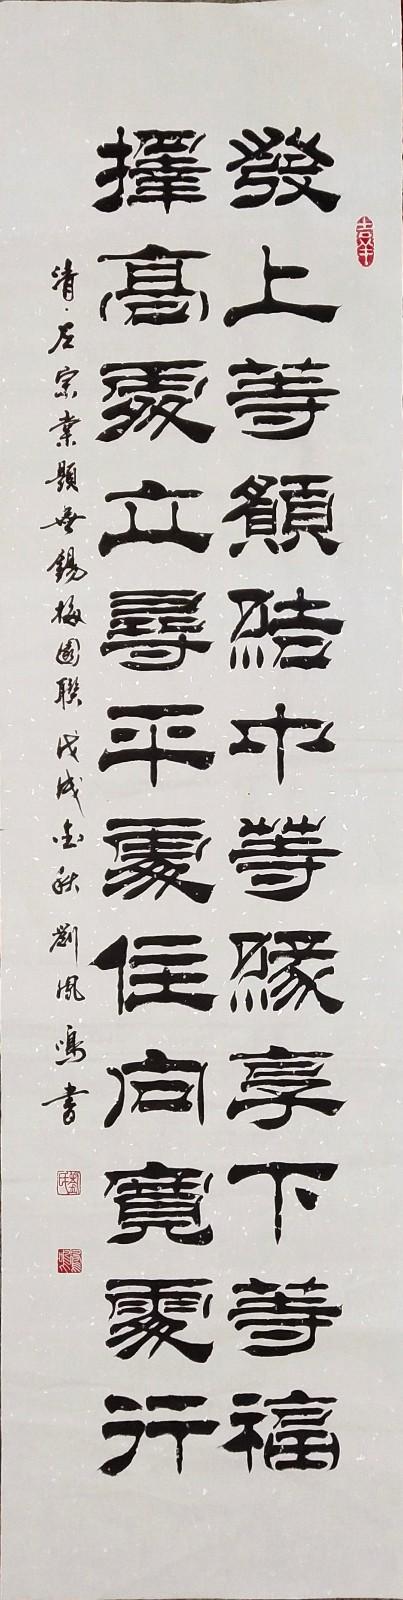 吉羊
發上等願結中等緣享下等福
擇高處立尋平處住向寬處行
清·左宗棠題無錫梅園聯戊戌金秋 劉鳳鳴書